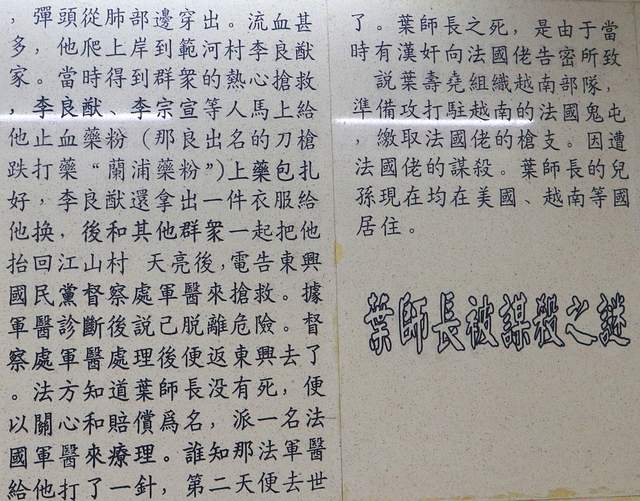 ，彈頭從肺部邊穿出。流血甚
多，他爬上岸到範河村李良猷
家。當時得到群衆的熱心搶救
，李良猷、李宗宣等人馬上給
他止血藥粉（那良出名的刀槍
跌打藥“蘭浦藥粉”)上藥包扎
好，李良猷還拿出一件衣服給
他换，後和其他群衆一起把他
抬回江山村 天亮後，電告東興
國民黨督察處軍醫來搶救。據
軍醫診斷後説己脱離危險。督
察處軍醫處理後便返東興去了
。法方知道葉師長没有死，便
以關心和賠償爲名，派一名法
國軍醫來療理。誰知那法軍醫
給他打了一針，第二天便去世
了。葉師長之死，是由于當
時有漢奸向法國佬告密所致
説葉壽堯組織越南部隊，
準備攻打駐越南的法國鬼屯
，繳取法國佬的槍支。因遭
法國佬的謀殺。葉師長的兒
孫現在均在美國、越南等國
居住。
葉師長被謀殺之謎